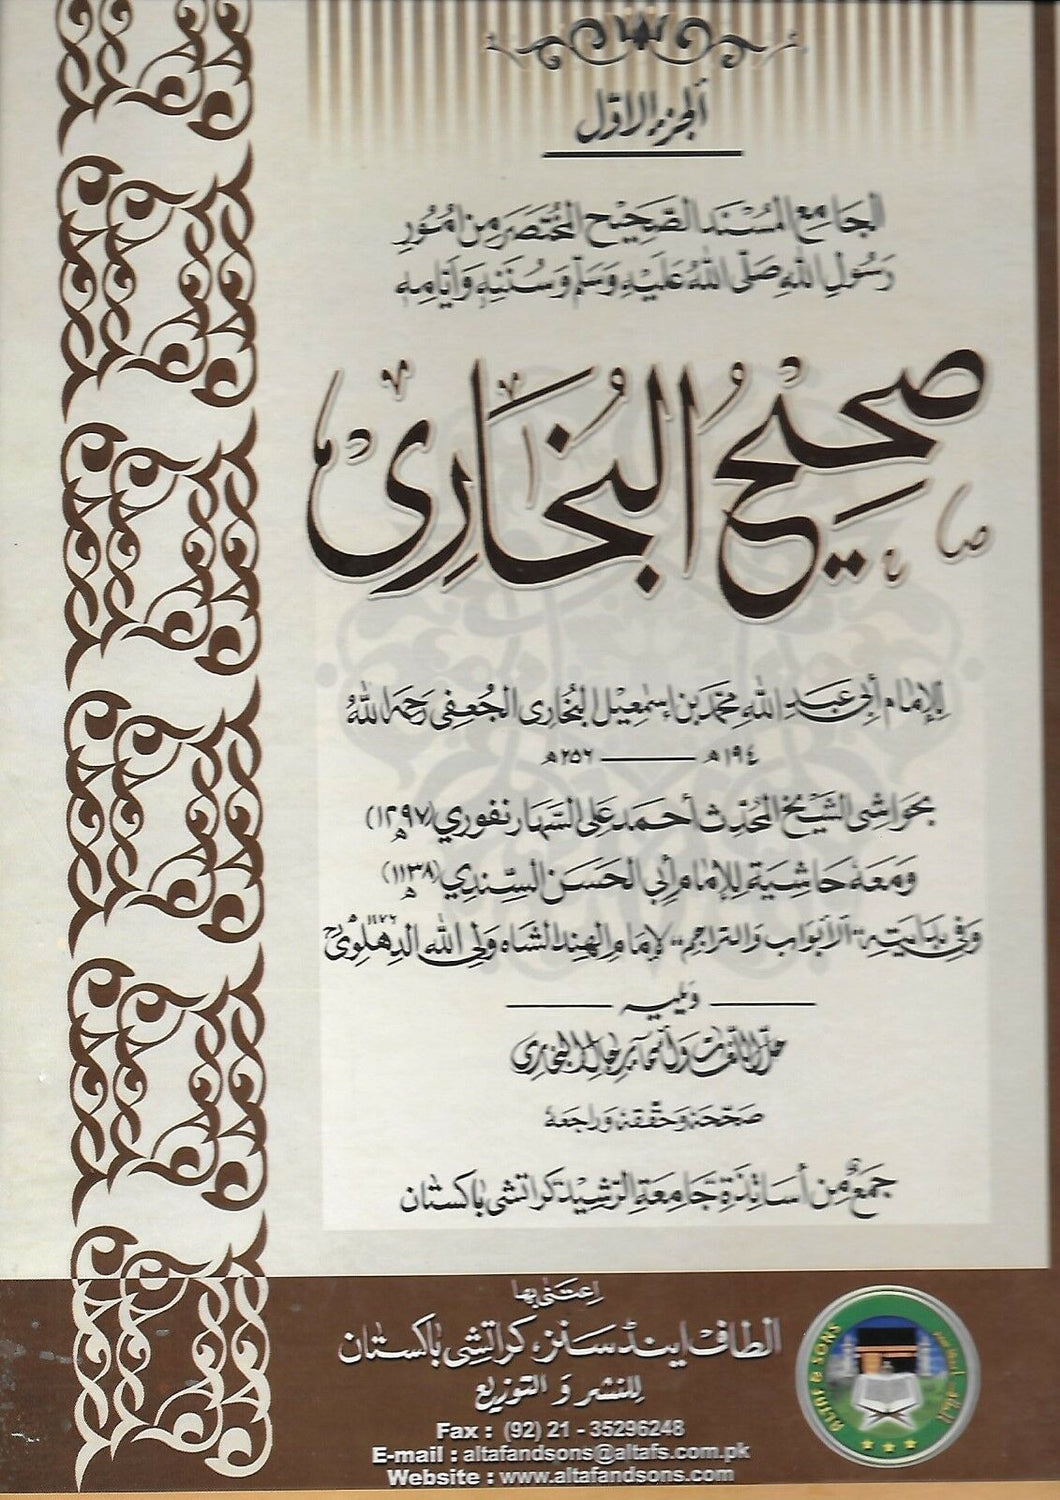 ألجزء الاوّل
الجَامِع المُسْنَد الصَّحِيْح المُخْتَصَر مِنْ اُمُوْرِ
رَسُوْلِ اللهِ صَلَّى اللهُ عَلَيْهِ وَسَلَّم وَسُنَنِهٖ وَاَيَّامِهٖ
صَحِيْحُ البُخَارِى
لِلإمَام أَبِى عَبدِ اللهِ محمّد بن إسْمٰعِيْل البُخَارى الجُعفِى رَحِمَهُ اللهُ
١٩٤ھ ——— ٢٥٦ھ
بحَوَاشِى الشَّيْخ المُحَدّث أحمَد عَلى السَّهَارنفوري (١٢٩٧ھ)
وَمَعَهٗ حَاشِيَة لِلإمَام أبِي الحَسَن السِّندِي (١١٣٨ھ)
وَفِى بدَايَتِهٖ "الأبْوَاب وَالتراجِم" لإمَام الهِند الشّاه وَلى الله الدِهلوِىّ ١١٧٦ھ
وَيَليه
صَحّحَهٗ وَحَقّقهٗ وَرَاجَعَهٗ
جَمعٌ مِّن أسَاتِذَةِ جَامِعَةِ الرّشِيد كَرَاتشى بَاكسْتَان
اِعتَنى بها
الطاف اينڈ سَنز، كراتشِى بَاكستَان
لِلنشر وَ التوزيع
Fax : (92) 21 - 35296248
E-mail : altafandsons@altafs.com.pk
Website : www.altafandsons.com
ALTAF & SONS